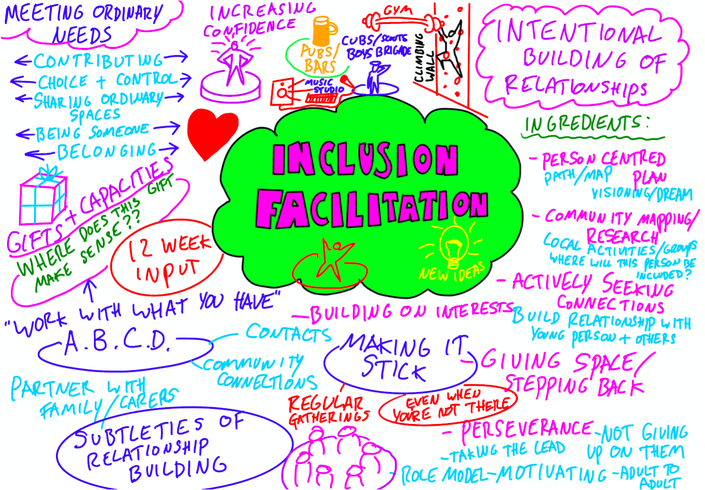 MEETING ORDINARY
NEEDS
CONTRIBUTING
CHOICE + CONTROL
SHARING ORDINARY
SPACES
BEING SOMEONE
BELONGING
INCREASING
CONFIDENCE
PUBS/
BARS
MUSIC
STUDIO
CUBS/SCOUTS
BOYS BRIGADE
GYM
CLIMBING
WALL
INTENTIONAL
BUILDING OF
RELATIONSHIPS
INCLUSION
FACILITATION
NEW IDEAS
GIFTS + CAPACITIES
WHERE DOES THIS GIFT
MAKE SENSE??
12 WEEK
INPUT
"WORK WITH WHAT YOU HAVE"
A.B.C.D.
CONTACTS
COMMUNITY
CONNECTIONS
PARTNER WITH
FAMILY/CARERS
SUBTLETIES OF
RELATIONSHIP
BUILDING
INGREDIENTS:
- PERSON CENTRED
PATH/MAP PLAN
VISIONING/DREAM
- COMMUNITY MAPPING/
RESEARCH
LOCAL ACTIVITIES/GROUPS
WHERE WILL THIS PERSON BE
INCLUDED?
- ACTIVELY SEEKING
CONNECTIONS
BUILD RELATIONSHIP WITH
YOUNG PERSON + OTHERS
- BUILDING ON INTERESTS
MAKING IT
STICK
- GIVING SPACE/
STEPPING BACK
REGULAR
GATHERINGS
EVEN WHEN
YOU'RE NOT THERE
- PERSEVERANCE - NOT GIVING
UP ON THEM
- TAKING THE LEAD
ROLE MODEL - MOTIVATING - ADULT TO
ADULT